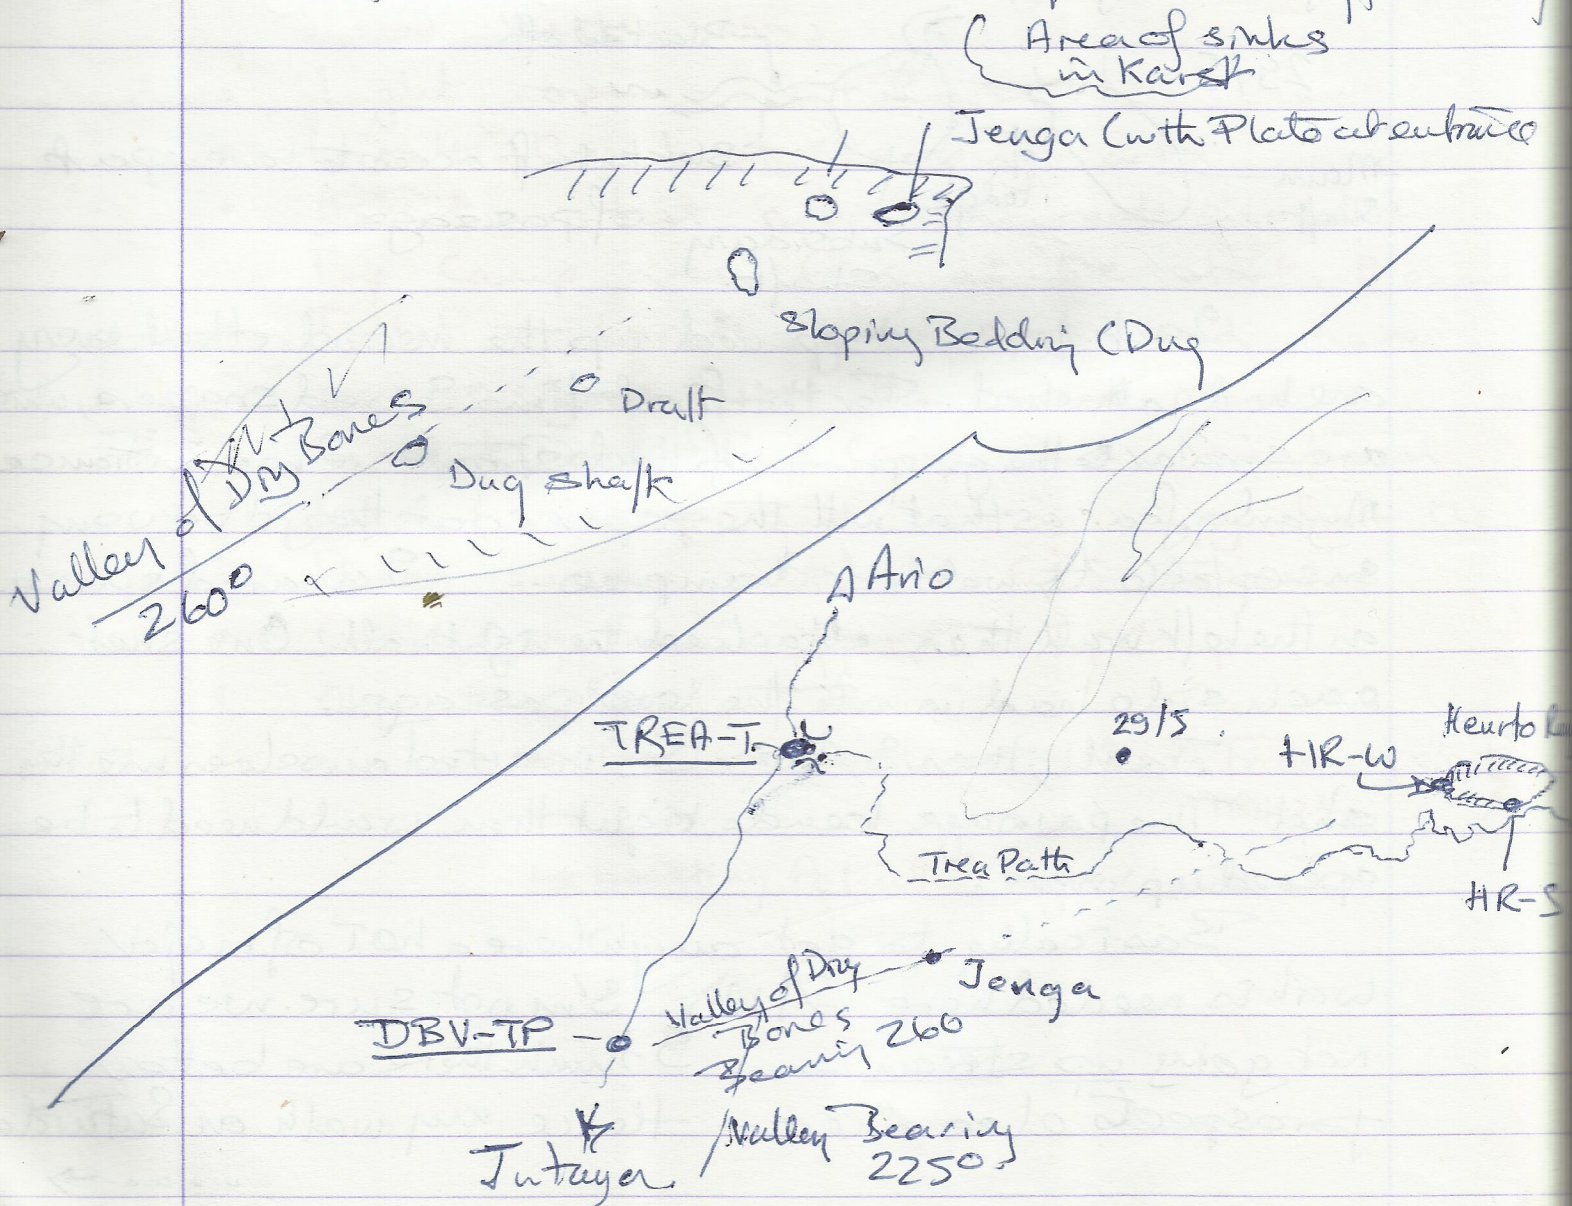 (Area of sinks
in Karst
Jenga (with Plate at entrance
Sloping Bedding (Dug
Draft
Dug shaft
Valley of Dry Bones
260°
Ario
TREA-T
29/5
HR-W
Heurto
Trea Path
HR-S
Jenga
Valley of Dry
Bones
Bearing 260
DBV-TP
Valley Bearing
225°
Jutayu